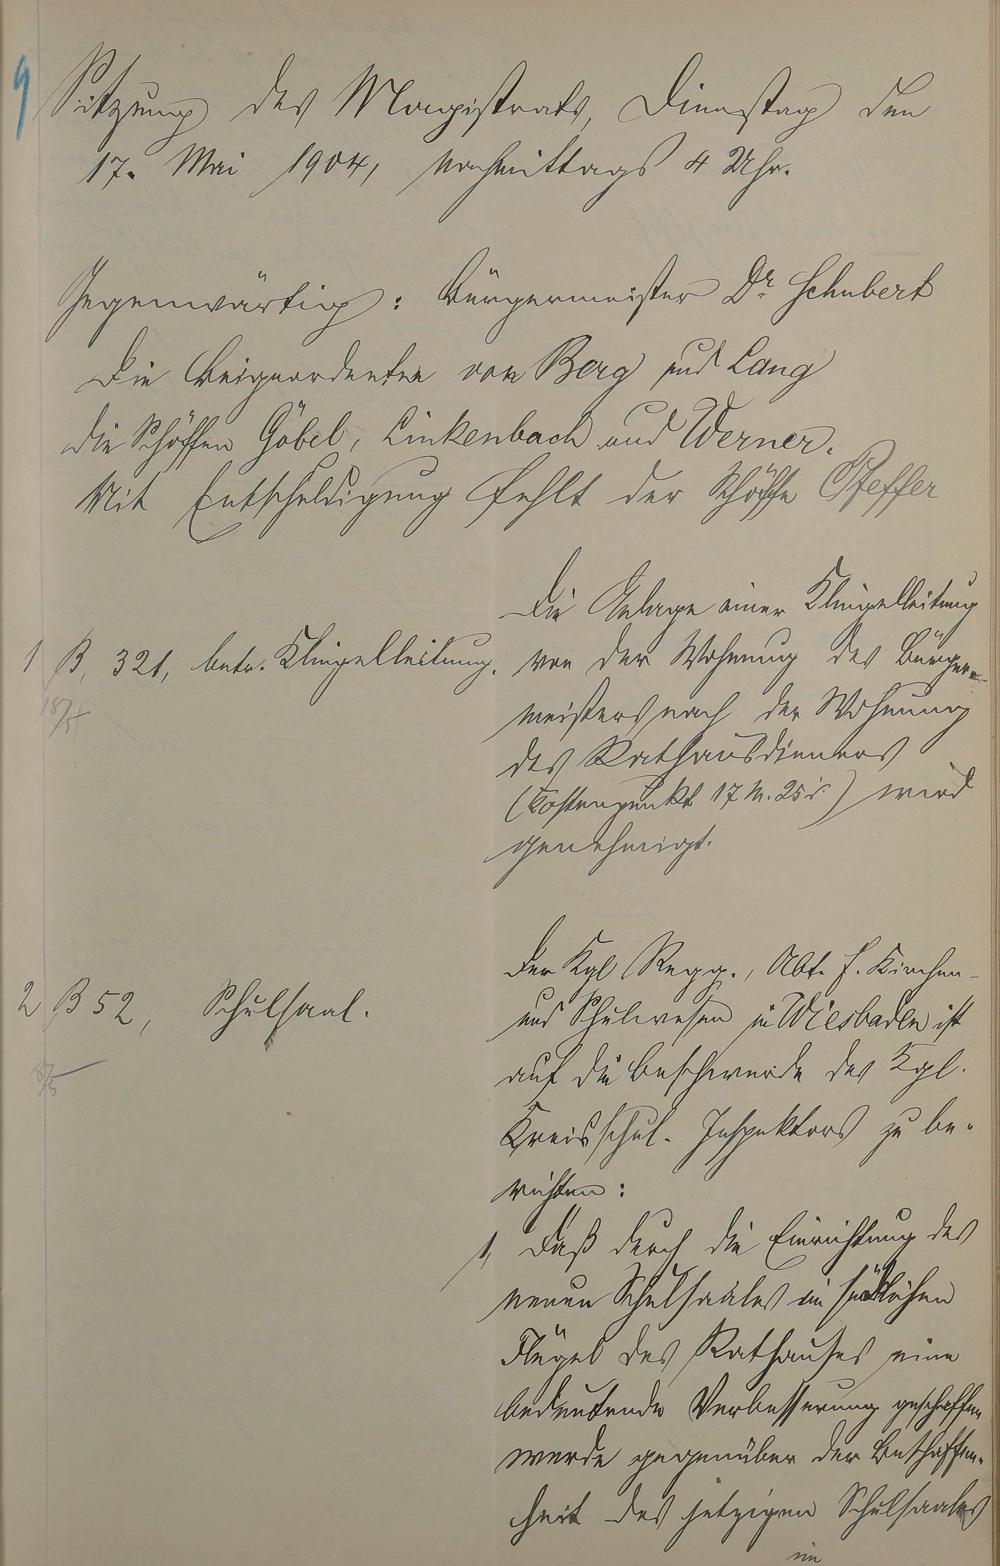 9
Sitzung des Magistrats, Dienstag den
17. Mai 1904, nachmittags 4 Uhr.
Gegenwärtig: Bürgermeister Dr Schubert
Die Beigeordneten von Berg und Lang
die Schöffen Göbel, Linkenbach und Werner.
Mit Entschuldigung fehlt der Schöffe Pfeffer
1 B, 321, betr. Klingelleitung.
18/5
Die Anlage einer Klingelleitung
von der Wohnung des Bürger-
meisters nach der Wohnung
des Rathausdieners
(Kostenpunkt 17 M. 25 ₰) wird
genehmigt.
2 B 52, Schulsaal.
18/5
Der Kgl Regg., Abt. f. Kirchen-
und Schulwesen in Wiesbaden ist
auf die Beschwerde des Kgl.
Kreisschul-Inspektors zu be-
richten:
1, Daß durch die Einrichtung des
neuen Schulsaales im südlichen
Flügel des Rathauses eine
bedeutende Verbesserung geschaffen
werde gegenüber der Beschaffen-
heit des jetzigen Schulsaales
im